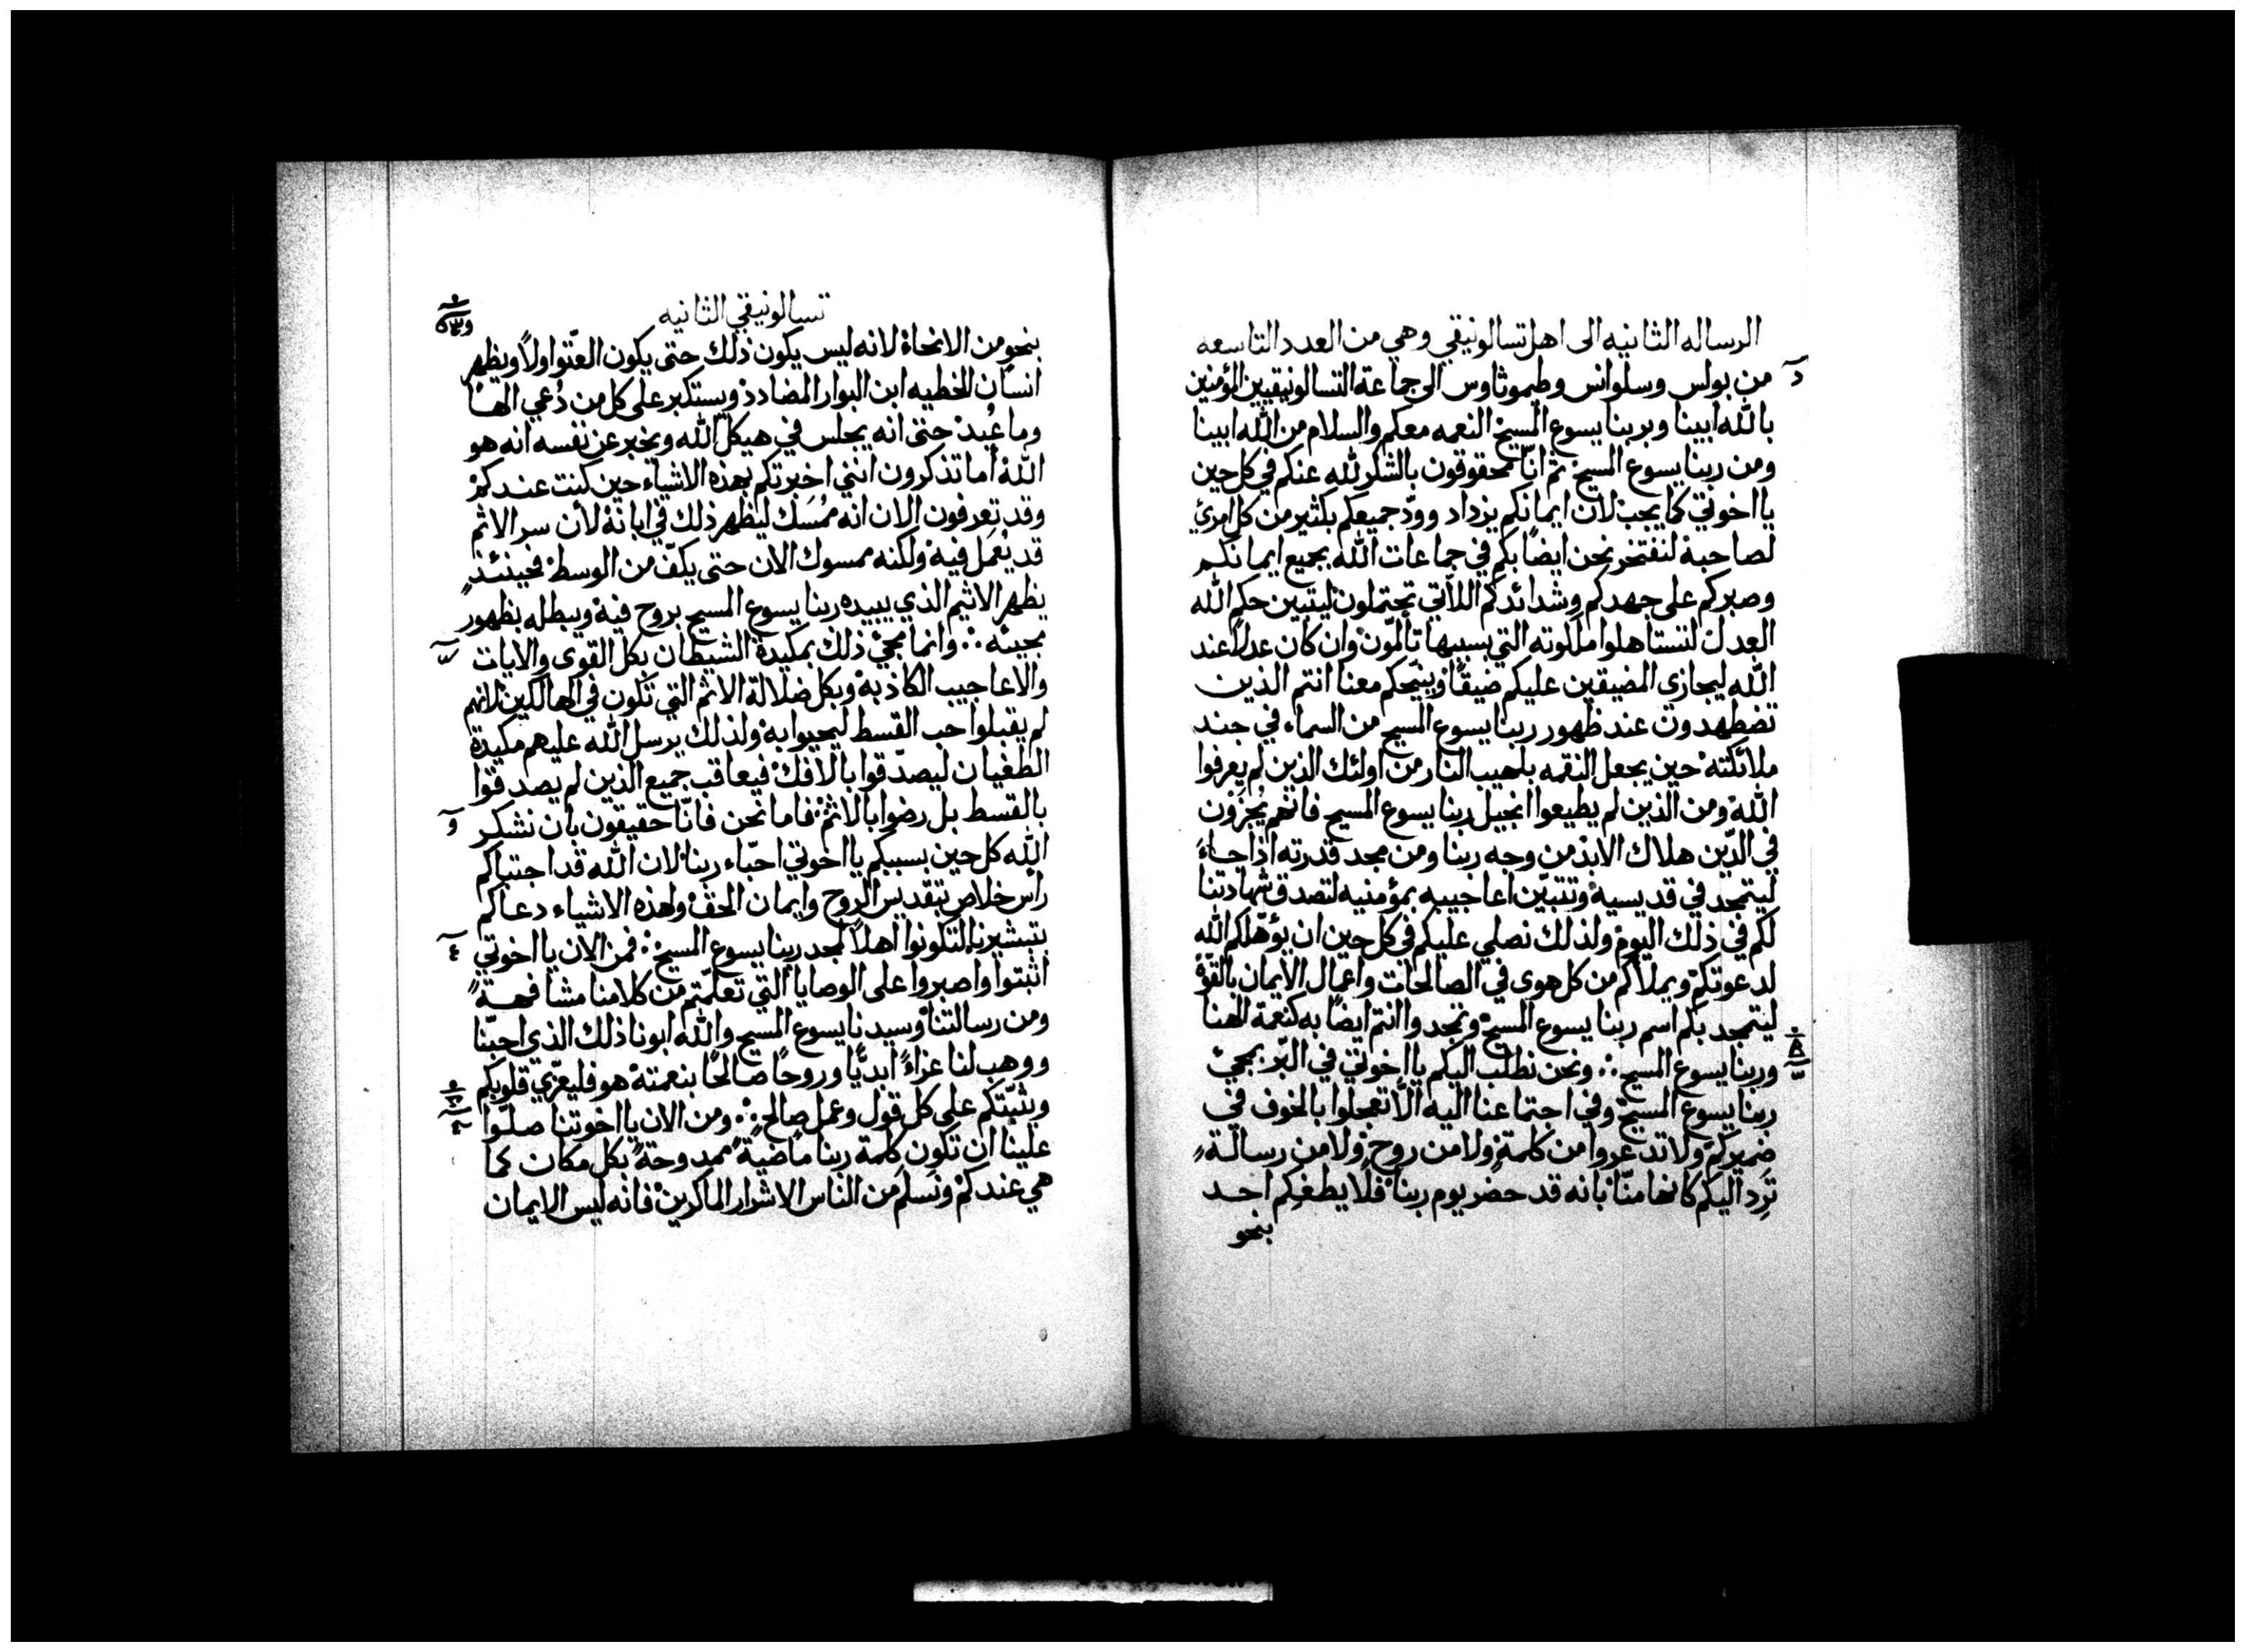 الرساله الثانيه الى اهل تسالونيقي وهي من العدد التاسعه
من بولس وسلوانس وطيموثاوس الى جماعة التسالونيقيين المؤمنين
بالله ابينا وبربنا يسوع المسيح النعمه معكم والسلام من الله ابينا
ومن ربنا يسوع المسيح ثم انّا محقوقون بالشكر لله عنكم في كل حين
يا اخوتي كما يجب لان ايمانكم يزداد وودّ جميعكم بكثير من كل امرئ
لصاحبه لنفتخر نحن ايضًا بكم في جماعات الله بجميع ايمانكم
وصبركم على جهدكم وشدائدكم اللاتي تحتملون ليتبين حكم الله
العدل لتستاهلوا ملكوته التي بسببها تألمون وان كان عدلًا عند
الله ليجازى المضيقين عليكم ضيقًا وينيحكم معنا انتم الذين
تضطهدون عند ظهور ربنا يسوع المسيح من السماء في جند
ملائكته حين يجعل النقمه بلهيب النار من اولئك الذين لم يعرفوا
الله ومن الذين لم يطيعوا انجيل ربنا يسوع المسيح فانهم يُجزَوْن
في الدّين هلاك الابد من وجه ربنا ومن مجد قدرته اذا جاءَ
ليتمجد في قديسيه وتتبيّن اعاجيبه بمؤمنيه لتصدق شهادتنا
لكم في ذلك اليوم ولذلك نصلي عليكم في كل حين ان يؤهّلكم الله
لدعوتكم ويملأكم من كل هوى في الصالحات واعمال الايمان بالقوة
ليتمجد بكم اسم ربنا يسوع المسيح وتمجدوا انتم ايضًا به كنعمة الهنا
وربنا يسوع المسيح ∴ ونحن نطلب اليكم يا اخوتي في البّر بمجئ
ربنا يسوع المسيح وفي اجتماعنا اليه الّا تعجلوا بالخوف في
ضميركم ولا تدعروا من كلمةٍ ولا من روح ولا من رسالةٍ
تَرِد اليكم كانها منّا بانه قد حضر يوم ربنا فلا يطغِكم احد
بنحو
تسالونيقي الثانيه
بنحو من الانحاء لانه ليس يكون ذلك حتى يكون العتّو اولًا ويظهر
انسان الخطيه ابن البوار المضادد ويستكبر على كل من دُعي الهًا
وما عُبِد حتى انه يجلس في هيكل الله ويخبر عن نفسه انه هو
الله أما تذكرون انني اخبرتكم بهذه الاشياء حين كنت عندكم
وقد تعرفون الان انه مُمسَك ليظهر ذلك في ابانه لأن سر الاثم
قد يُعمَل فيه ولكنه ممسوك الآن حتى يكفّ من الوسط فحينئذٍ
يظهر الاثيم الذي يبيده ربنا يسوع المسيح بروح فيه ويبطله بظهور
مجيئه ∴ وانما مجئ ذلك بمكيدة الشيطان بكل القوى والايات
والاعاجيب الكاذبه وبكل ضلالة الاثم التي تكون في الهالكين لانهم
لم يقبلوا حب القسط ليحيوا به ولذلك يرسل الله عليهم مكيدة
الطغيان ليصدّقوا بالافك فيعاقب جميع الذين لم يصدقوا
بالقسط بل رضوا بالاثم فاما نحن فانّا حقيقون بأن نشكر
الله كل حين بسببكم يا اخوتي احبّاء ربنا لان الله قد اجتباكم
راس خلاص بتقديس الروح وايمان الحق ولهذه الاشياء دعاكم
بتبشيرنا لتكونوا اهلًا لمجد ربنا يسوع المسيح ∴ فمن الان يا اخوتي
اثبتوا واصبروا على الوصايا التي تعلّمتم من كلامنا مشافهةً
ومن رسالتنا وسيدنا يسوع المسيح والله ابونا ذلك الذي احبنا
ووهب لنا عزاءً ابديًّا وروحًا صالحًا بنعمته هو فليعزّي قلوبكم
ويثبّتكم على كل قول وعمل صالح ∴ ومن الان يا اخوتنا صلّوا
علينا ان تكون كلمة ربنا ماضيةً ممدوحةً بكل مكان كما
هي عندكم ونسلم من الناس الاشرار الماكرين فانه ليس الايمان